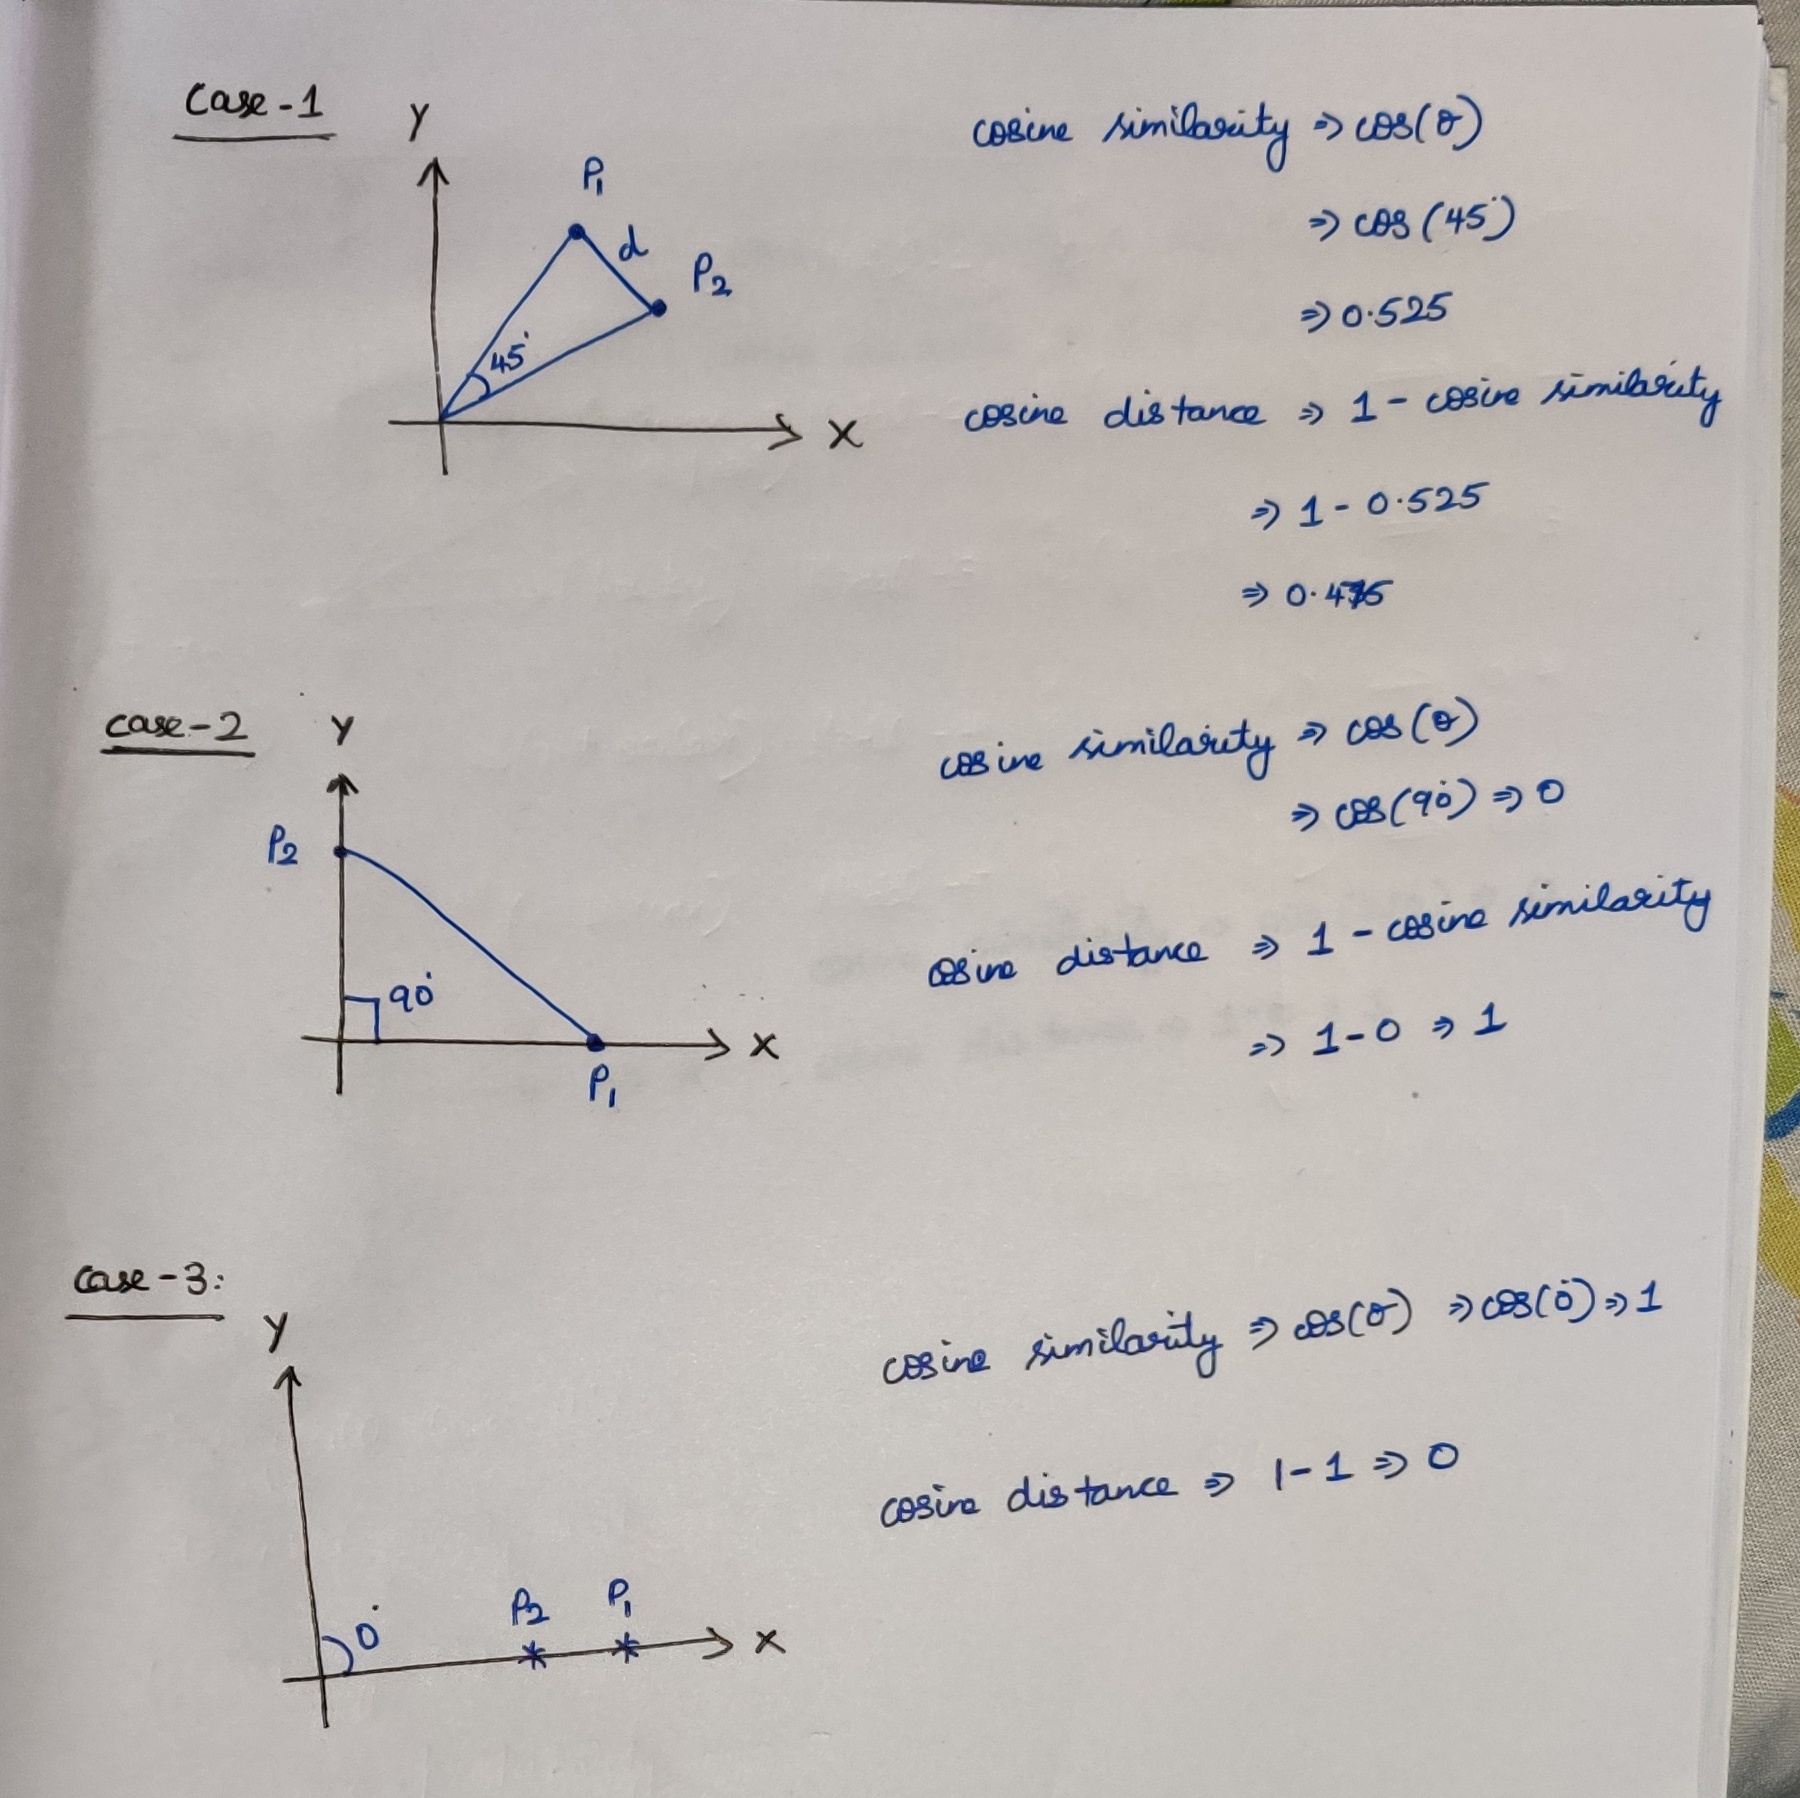 Case-1
Y
P1
d
P2
45°
X
cosine similarity ⇒ cos(θ)
⇒ cos(45°)
⇒ 0.525
cosine distance ⇒ 1 - cosine similarity
⇒ 1 - 0.525
⇒ 0.475
case-2
Y
P2
90°
X
P1
cosine similarity ⇒ cos(θ)
⇒ cos(90°) ⇒ 0
cosine distance ⇒ 1 - cosine similarity
⇒ 1-0 ⇒ 1
case-3:
Y
0°
P2
P1
X
cosine similarity ⇒ cos(θ) ⇒ cos(0°) ⇒ 1
cosine distance ⇒ 1-1 ⇒ 0